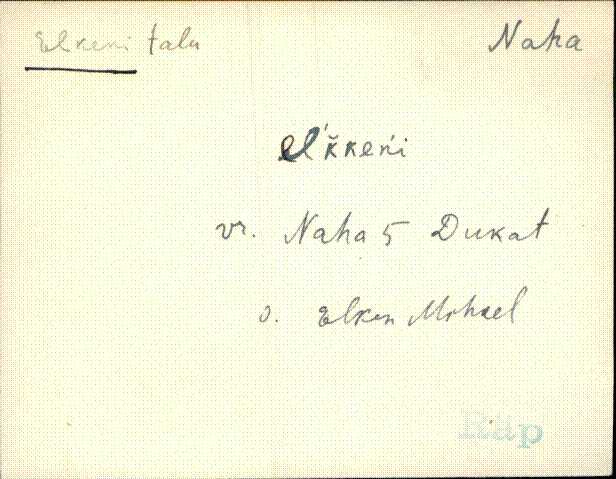 Elkeni talu Naha
el'k̆keńi
vr. Naha 5 Dukat
o. Elken Mihkel
Räp